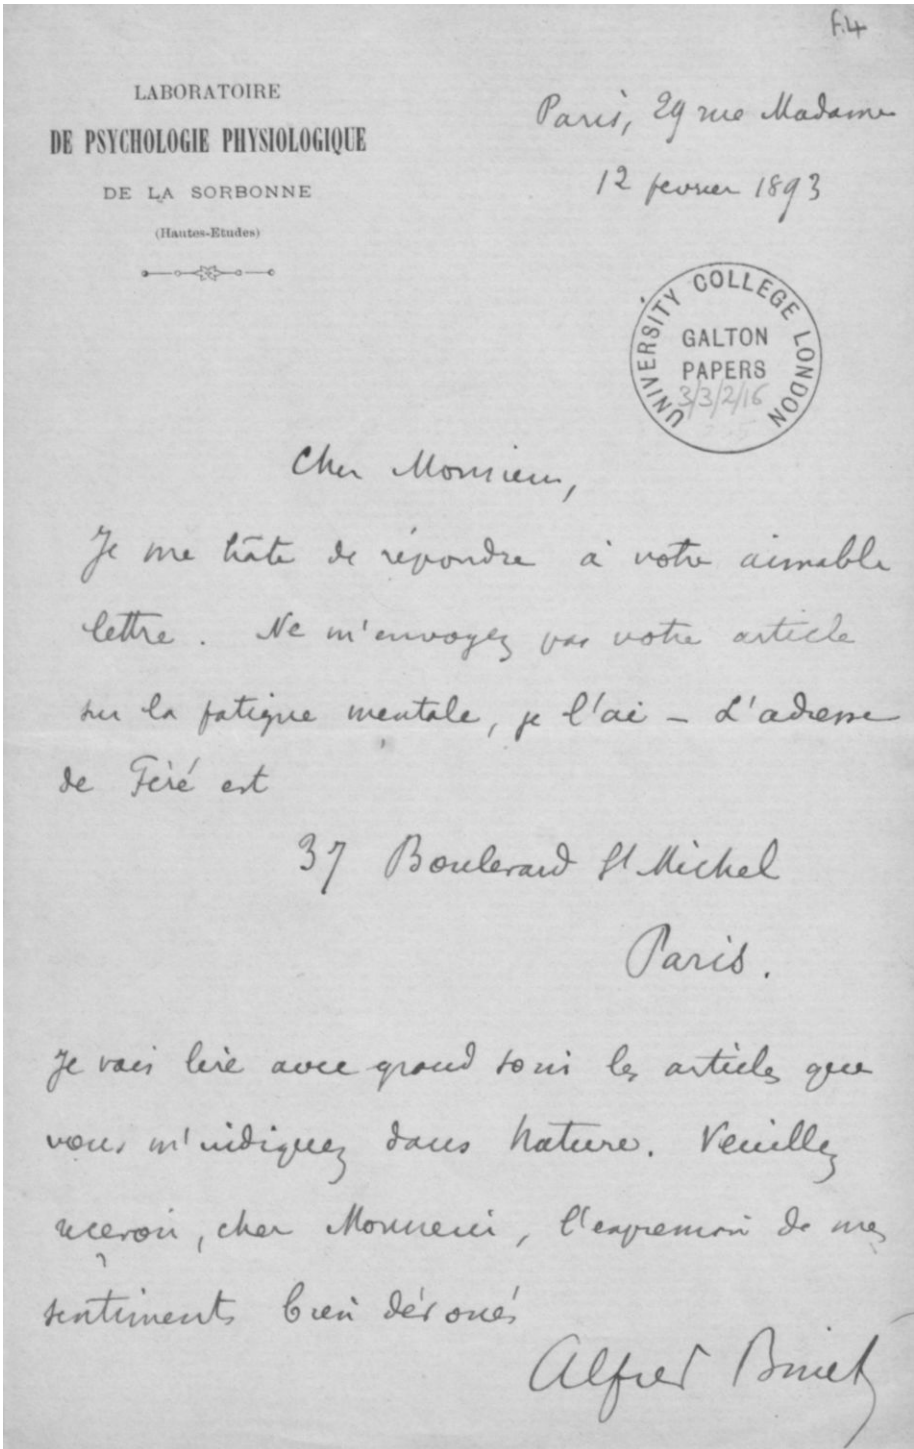 f.4
LABORATOIRE
DE PSYCHOLOGIE PHYSIOLOGIQUE
DE LA SORBONNE
(Hautes-Etudes)
Paris, 29 rue Madame
12 fevrier 1893
UNIVERSITY COLLEGE LONDON
GALTON
PAPERS
3/3/2/16
Cher Monsieur,
Je me hâte de répondre à votre aimable
lettre. Ne m'envoyez pas votre article
sur la fatigue mentale, je l'ai – L'adresse
de Féré est
37 Boulevard St Michel
Paris.
Je vais lire avec grand soin les articles que
vous m'indiquez dans Nature. Veuillez
recevoir, cher Monsieur, l'expression de mes
sentiments bien dévoués
Alfred Binet